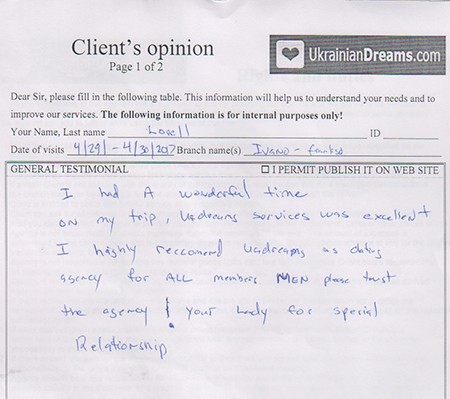 Client's opinion
Page 1 of 2
UkrainianDreams.com
Dear Sir, please fill in the following table. This information will help us to understand your needs and to
improve our services. The following information is for internal purposes only!
Your Name, Last name Lovell ID
Date of visits 4/29/ - 4/30/2017 Branch name(s) Ivano -
GENERAL TESTIMONIAL ☐ I PERMIT PUBLISH IT ON WEB SITE
I had A wonderful time
on my trip, Uadreams services was excellent
I highly reccomend uadreams as dating
agency for ALL members MEN please trust
the agency ! your Lady for special
Relationship